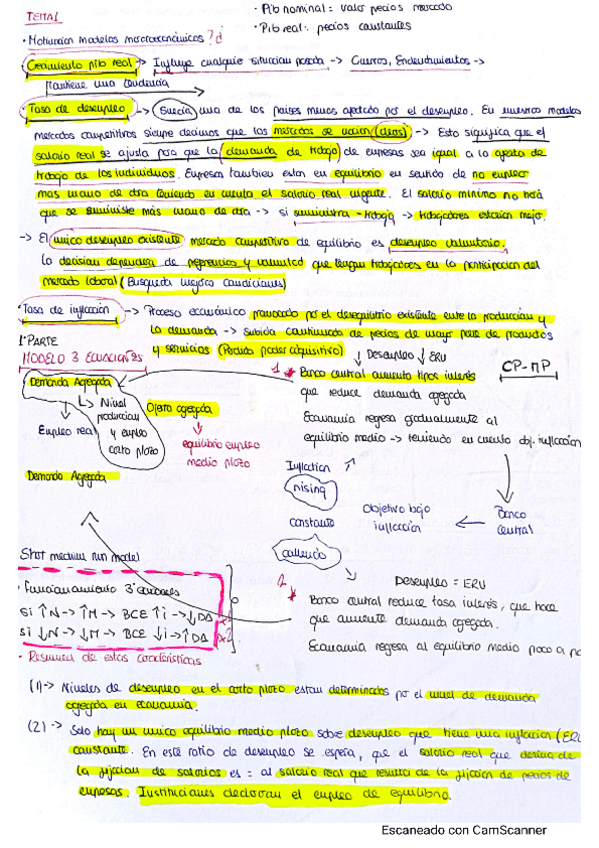 TEMA 1
· Pib nominal = valor precios mercado
· Pib real: precios constantes
· Motivacion modelos macroeconómicos ?¿
Crecimiento pib real -> Incluye cualquier situacion pasada -> Guerras, Endeudamientos ->
Mantiene una tendencia
· Tasa de desempleo -> Suecia, uno de los paises menos afectado por el desempleo. En nuestros modelos
mercados competitivos siempre decimos que los mercados se vacian (clears) -> Esto significa que el
salario real se ajusta para que la demanda de trabajo de empresas sea igual a la oferta de
trabajo de los individuos. Empresas tambien estan en equilibrio en sentido de no emplear
mas mano de obra teniendo en cuenta el salario real vigente. El salario minimo no hará
que se suministre más mano de obra -> si suministra - trabajo -> trabajadores estarian mejor.
-> El unico desempleo existente mercado competitivo de equilibrio es desempleo voluntario.
La decision dependera de preferencias y voluntad que tengan trabajadores en la participacion del
mercado laboral (Busqueda mejores condiciones)
· Tasa de inflacción -> Proceso económico provocado por el desequilibrio existente entre la produccion y
la demanda -> subida continuada de precios de mayor parte de productos
y servicios (Perdida poder adquisitivo)
1ª PARTE
MODELO 3 ECUACIONES
↓ Desempleo ↓ ERU
CP-MP
Demanda Agregada
1 * Banco central aumenta tipos interés
que reduce demanda agregada
↳ Nivel produccion y empleo corto plazo
Empleo real
Oferta agregada
↓
equilibrio empleo
medio plazo
Economia regresa gradualmente al
equilibrio medio -> teniendo en cuenta obj. inflaccion
Demanda Agregada
Inflation
rising
constante
callendo
Objetivo bajo
inflaccion
Banco
central
Short medium run model
· Funcionamiento 3 ecuaciones
Si ↑N -> ↑π -> BCE ↑i -> ↓DA
Si ↓N -> ↓π -> BCE ↓i -> ↑DA
Desempleo = ERU
2 * Banco central reduce tasa interés, que hace
que aumente demanda agregada.
Economia regresa al equilibrio medio poco a po
· Resumen de estas caracteristicas
(1) -> Niveles de desempleo en el corto plazo estan determinados por el nivel de demanda
agregada en economia.
(2) -> Solo hay un unico equilibrio medio plazo sobre desempleo que tiene una inflaccion (ERU
constante. En este ratio de desempleo se espera, que el salario real que deriva de
la fijacion de salarios es = al salario real que resulta de la fijacion de precios de
empresas. Instituciones declaran el empleo de equilibrio.
Escaneado con CamScanner